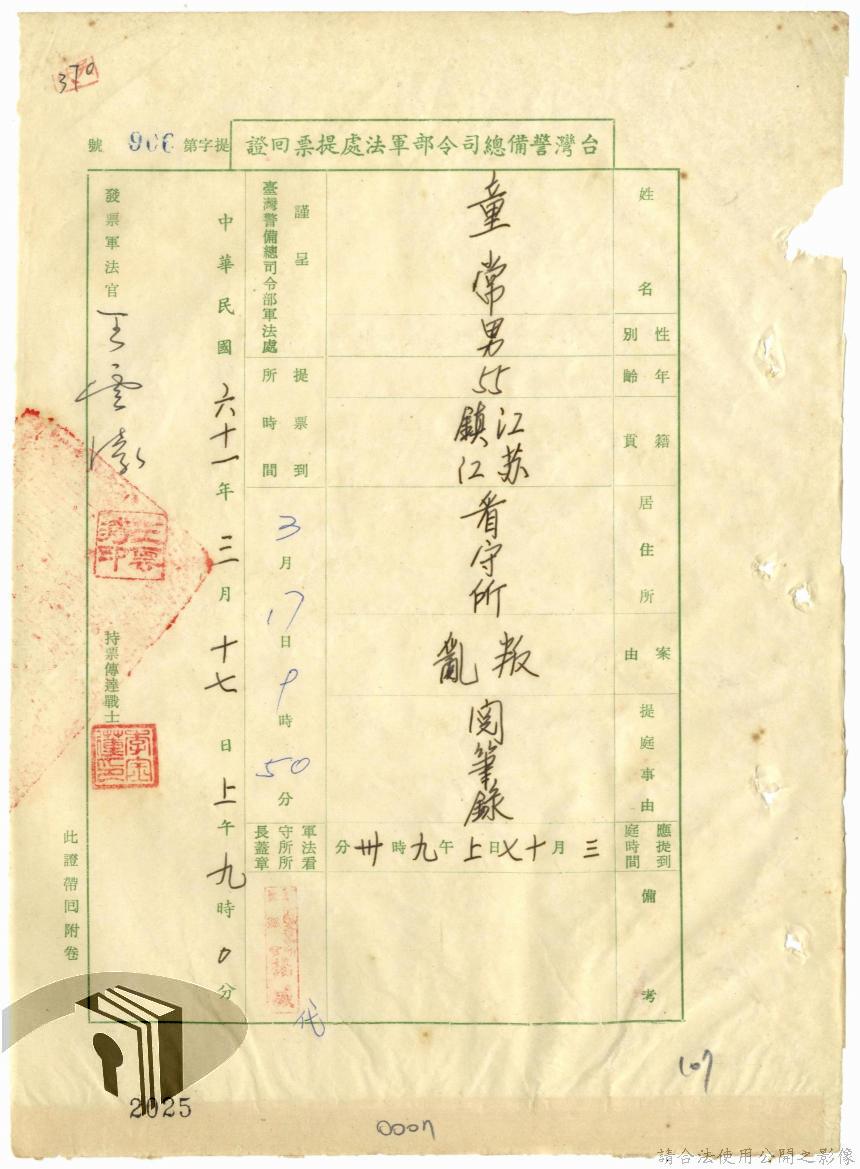 370
台灣警備總司令部軍法處提票回證
提字第906號
姓名
童常
性別
男
年齡
55
籍貫
江苏
鎮江
居住所
看守所
案由
叛亂
提庭事由
閱筆錄
應提到庭時間
三月十七日上午九時卅分
備考
謹呈
臺灣警備總司令部軍法處
提票到所時間
3月17日9時50分
軍法看守所所長蓋章
代
中華民國六十一年三月十七日上午九時0分
發票軍法官
王雲濤
持票傳達戰士
此證帶回附卷
107
2025
0007
請合法使用公開之影像